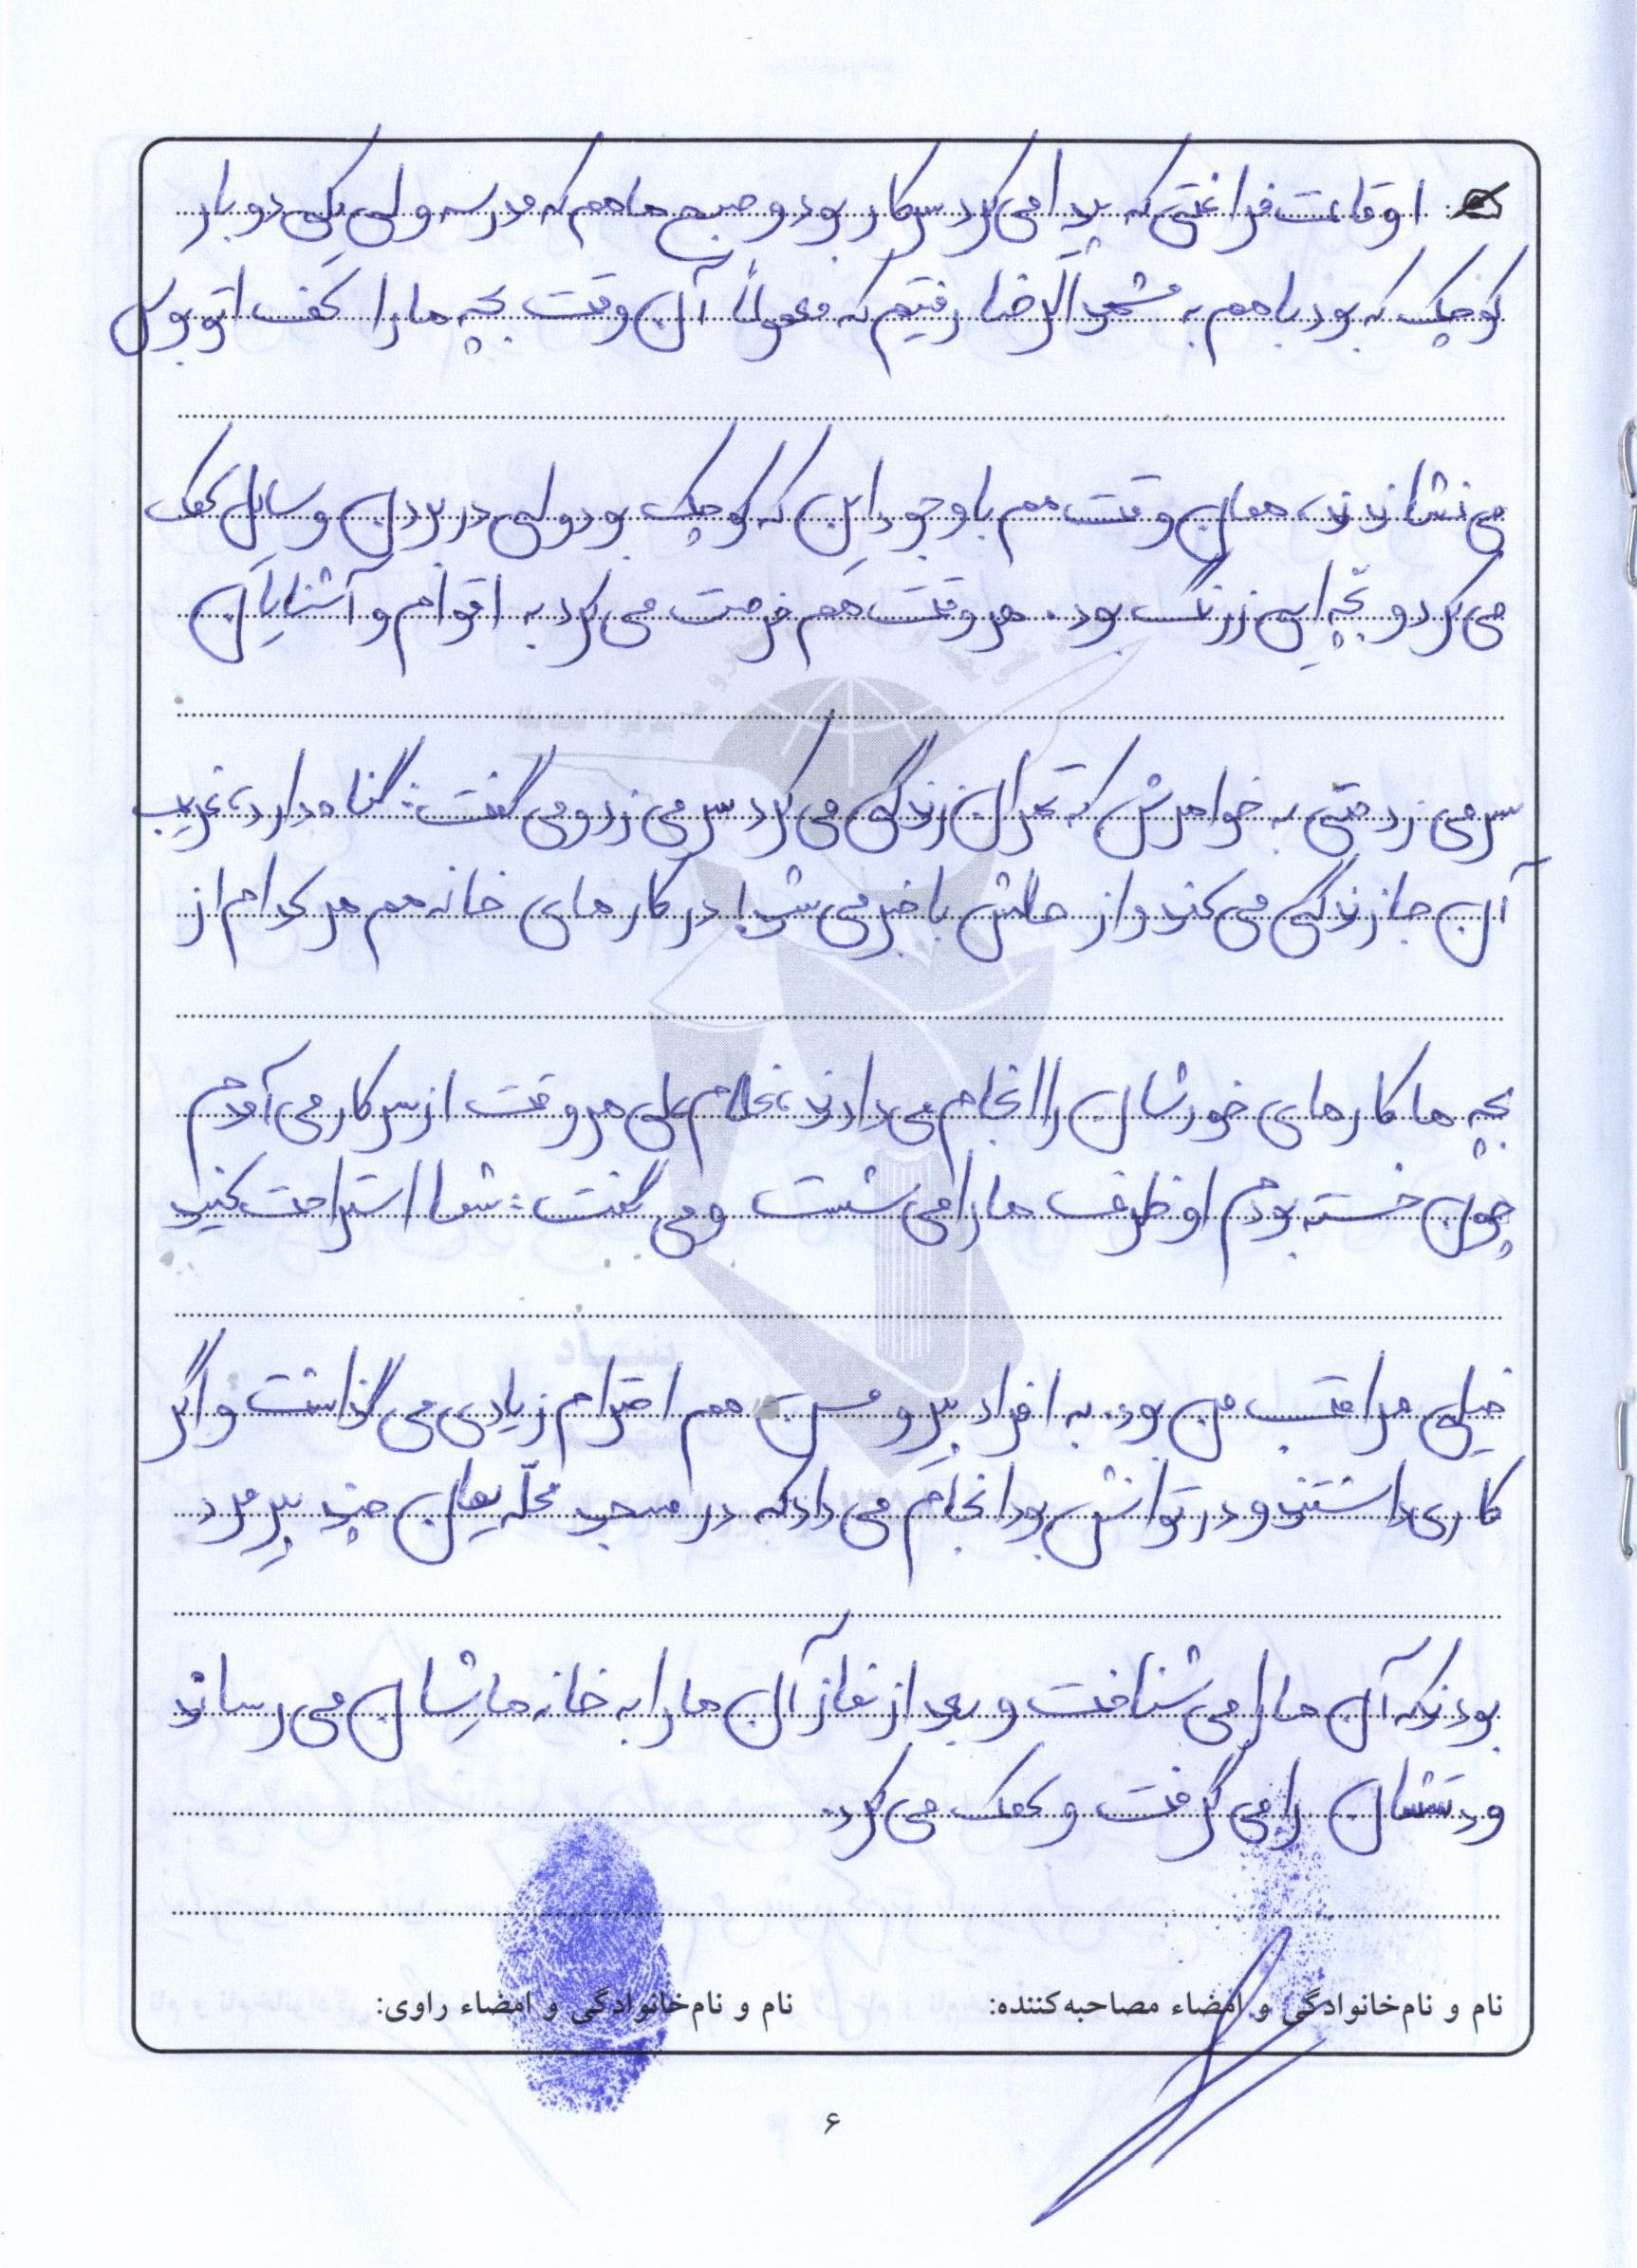 اوقات فراغتی که پیدا می کرد سر کار بود و صبح ها هم که مدرسه ولی یکی دو بار
کوچک که بود با هم به مشهد الرضا رفتیم که معمولاً آن وقت بچه ها را کف اتوبوس
می نشاندند، همان وقت هم با وجود این که کوچک بود ولی در بردن وسایل کمک
می کرد و بچّه ایی زرنگ بود. هر وقت هم فرصت می کرد به اقوام و آشنایان
سر می زد حتی به خواهرش که تهران زندگی می کرد سر می زد و می گفت: گناه دارد، غریب
آن جا زندگی می کند و از حالش با خبر می شد! در کارهای خانه هم هر کدام از
بچه ها کارهای خودشان را انجام می دادند، غلام علی هر وقت از سر کار می آمدم
چون خسته بودم او ظرف ها را می شست و می گفت: شما استراحت کنید
خیلی مراقب من بود. به افراد پیر و مسن هم احترام زیادی می گذاشت و اگر
کاری داشتند و در توانش بود انجام می داد که در مسجد محلّه یمان چند پیرمرد
بودند که آن ها را می شناخت و بعد از نماز آن ها را به خانه هایشان می رساند
و دستشان را می گرفت و کمک می کرد.
نام و نام‌خانوادگی و امضاء مصاحبه‌کننده: نام و نام‌خانوادگی و امضاء راوی:
۶